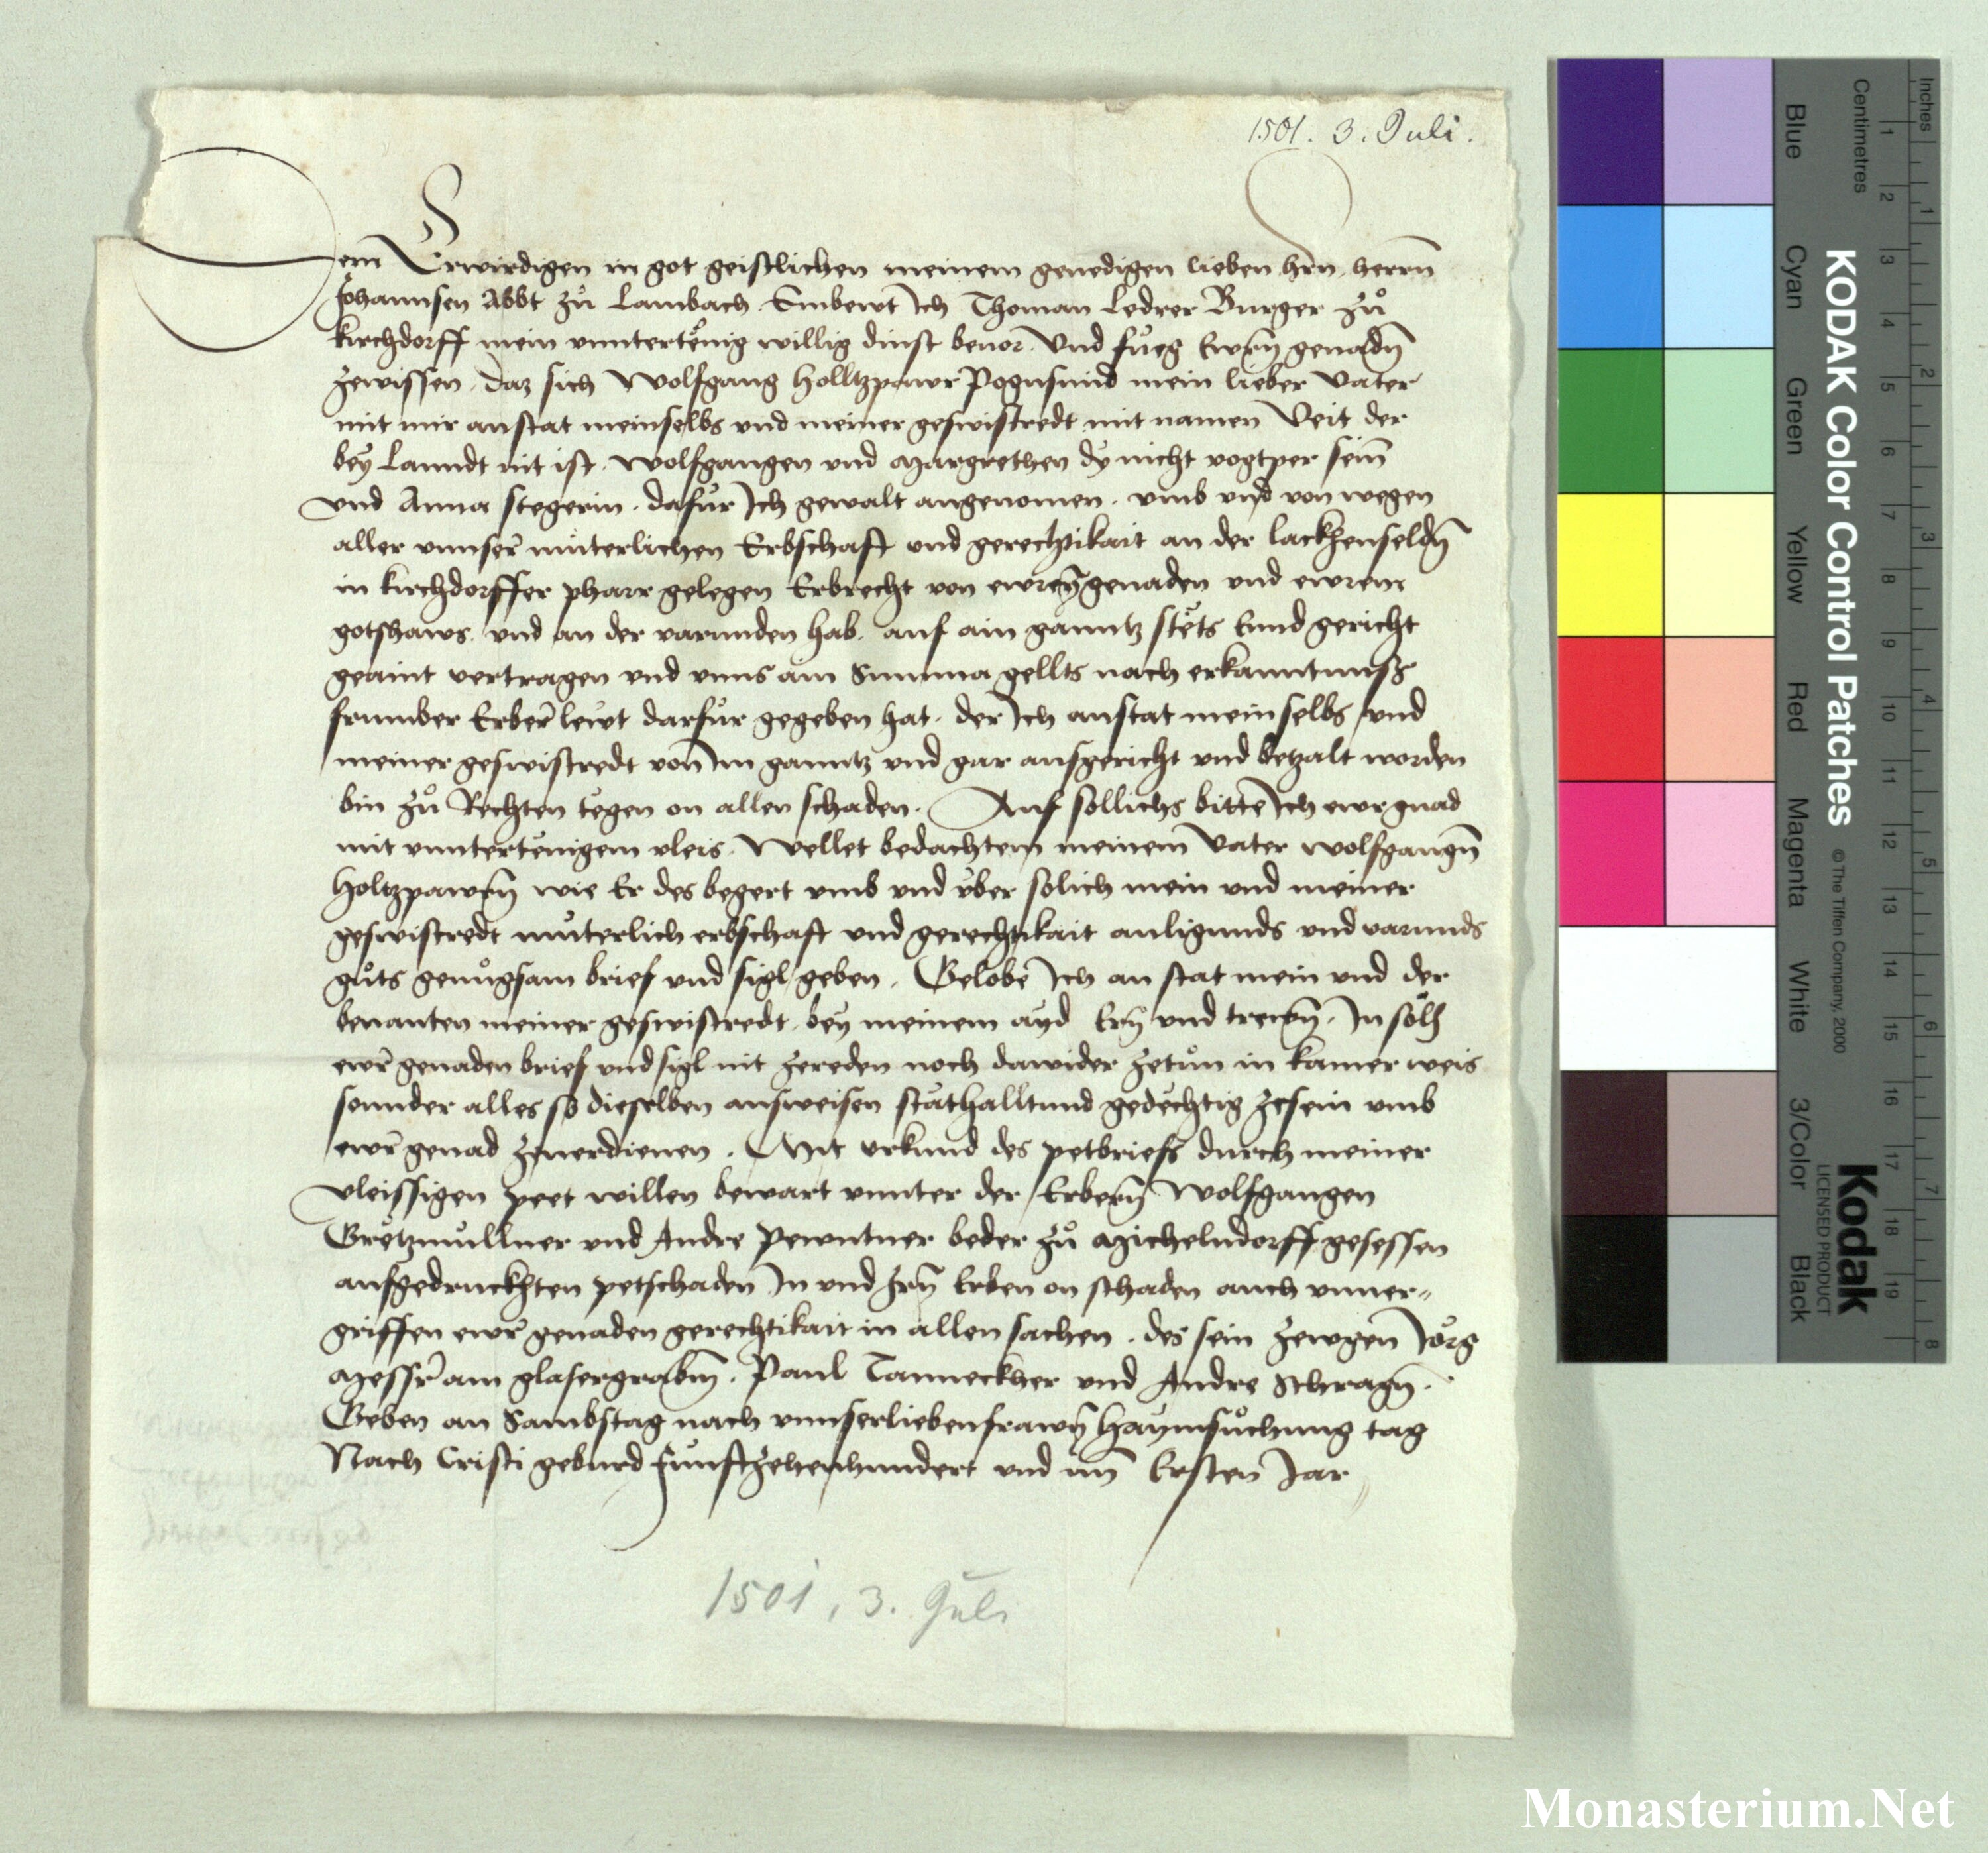 1501. 3. Juli.
Dem Erwirdigen in got geistlichen meinem genedigen lieben hrn herrn
Johannsen Abbt zů Lambach Embewt Ich Thoman Ledrer Burger zů
kirchdorff mein unntertenig willig dinst beuor Und füeg Ewrn genadn
zewissen daz sich Wolfgang Holltzpawr Pognsmid mein lieber Vater
mit mir anstat meinselbs vnd meiner geswistredt mit namen Veit der
bey Lanndt nit ist. Wolfgangen vnd Margrethen dy nicht vogtper sein
vnd Anna stegerin. dafür Ich gewalt angenomen. vmb vnd von wegen
aller vnnser müterlichen Erbschafft vnd gerechtikait an der lackhenseldn
in kirchdorffer pharr gelegen Erbrecht von ewren genaden vnd ewrem
gotshaws. vnd an der varunden hab. auf ain ganntz stëts Ennd gericht
geaint vertragen vnd vnns ain Summa gellts nach erkanntnuss
frumber Erber lewt darfür gegeben hat. der Ich anstat mein selbs vnd
meiner geswistredt von Im ganntz vnd gar ausgericht vnd betzalt worden
bin zů Rechten tëgen on allen schaden. Auf sollichs bitte Ich ewr gnad
mit vnntertënigem vleis. Wellet bedachtem meinem Vater wolfgangn
Holtzpawrn wie Er des begert vmb vnd vber solich mein vnd meiner
geswistredt müterlich erbschafft vnd gerechtikait anligunds vnd varunds
gůts genůgsam brief vnd sigl geben. Gelobe Ich an stat mein vnd der
benanten meiner geswistredt. bey meinem ayd Ern vnd trewn. In sölh
ewr genaden brief vnd sigl nit zereden noch dawider zetůn in kainer weis
sonnder alles so dieselben ausweisen stäthalltund gedëchtig zesein vmb
ewr genad zuuerdienen. Mit vrkund des petbriefs durch meiner
vleissigen peet willen bewart vnnter der Erbern Wolfgangen
Grëtzmüllner vnd Andre Pewntner beder zů Michelndorff gesessen
aufgedruckhten petschaden In vnd Irn Erben on schaden auch vnuer=
griffen ewr genaden gerechtikait in allen sachen. des sein zewgen Jörg
Messrer am glasergrabm. Paul Tanneckher vnd Andre Schragn.
Geben an Sambstag nach vnnserliebenfrawn Haymsůchung tag
Nach Cristi geburd Fünftzehenhundert vnd im Ersten Jar
1501, 3. Juli
KODAK Color Control Patches
© The Tiffen Company, 2000
Kodak
LICENSED PRODUCT
Inches
Centimetres
1 2 3 4 5 6 7 8 9 10 11 12 13 14 15 16 17 18 19
1 2 3 4 5 6 7 8
Blue
Cyan
Green
Yellow
Red
Magenta
White
3/Color
Black
Monasterium.Net